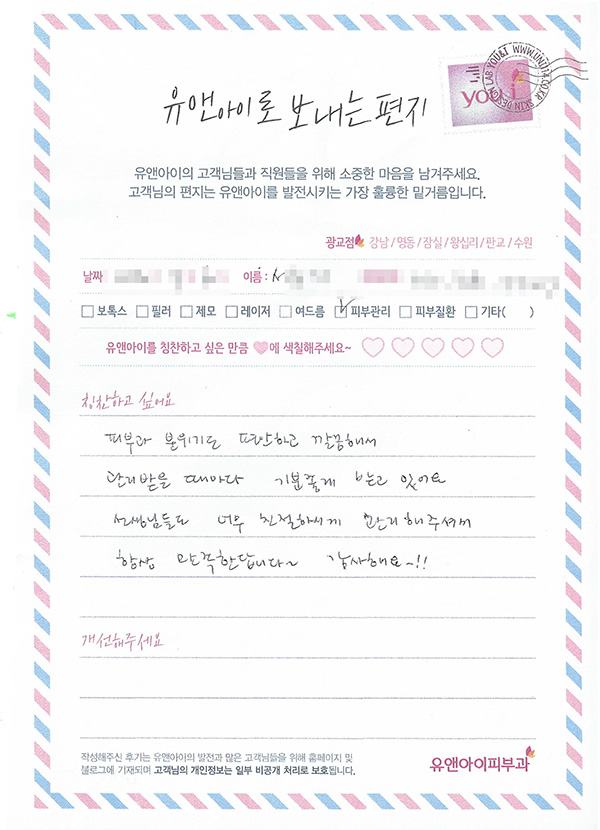 유앤아이로 보내는 편지
you&i
LAB YOU&I WWW.UNI114.CO.KR SKIN DESIGN
유앤아이의 고객님들과 직원들을 위해 소중한 마음을 남겨주세요.
고객님의 편지는 유앤아이를 발전시키는 가장 훌륭한 밑거름입니다.
광교점 강남 / 명동 / 잠실 / 왕십리 / 판교 / 수원
날짜 이름 :
보톡스 필러 제모 레이저 여드름 피부관리 피부질환 기타( )
유앤아이를 칭찬하고 싶은 만큼 ♥에 색칠해주세요~ ♡ ♡ ♡ ♡ ♡
칭찬하고 싶어요
피부과 분위기도 편안하고 깔끔해서
관리받을 때마다 기분좋게 받고 있어요
선생님들도 너무 친절하시게 관리해주셔서
항상 만족한답니다~ 감사해요~!!
개선해주세요
작성해주신 후기는 유앤아이의 발전과 많은 고객님들을 위해 홈페이지 및
블로그에 기재되며 고객님의 개인정보는 일부 비공개 처리로 보호됩니다.
유앤아이피부과